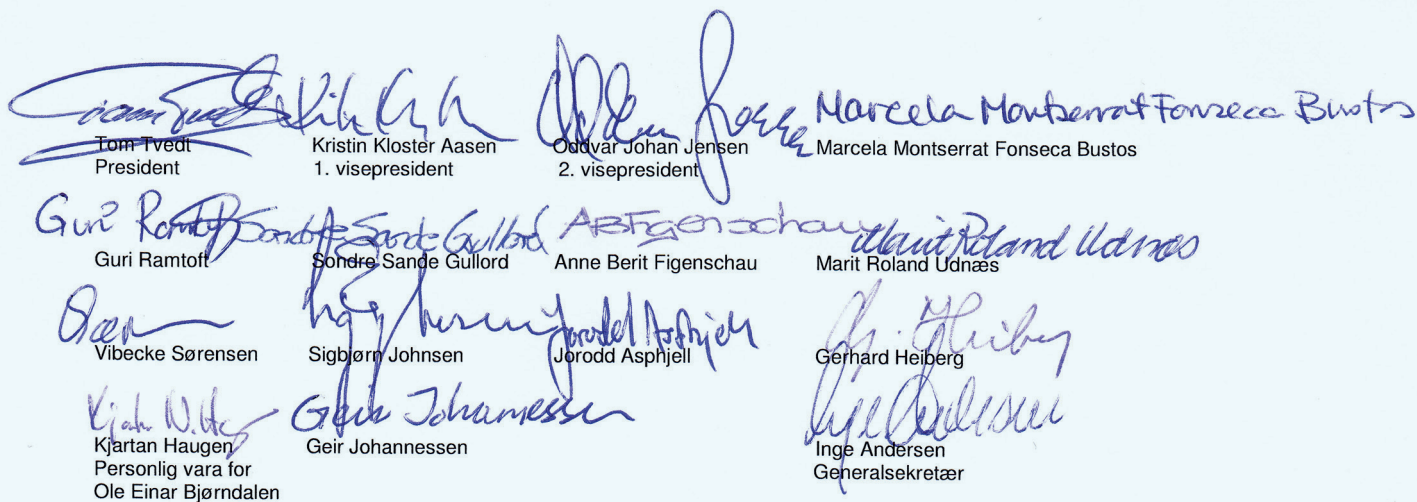 Marcela Montserrat Fonseca Bustos
Tom Tvedt
President
Kristin Kloster Aasen
1. visepresident
Oddvar Johan Jensen
2. visepresident
Marcela Montserrat Fonseca Bustos
Guri Ramtoft
Sondre Sande Gullord
ABFigenschau
Marit Roland Udnæs
Guri Ramtoft
Sondre Sande Gullord
Anne Berit Figenschau
Marit Roland Udnæs
Jorodd Asphjell
Vibecke Sørensen
Sigbjørn Johnsen
Jorodd Asphjell
Gerhard Heiberg
Geir Johannessen
Inge Andersen
Kjartan Haugen
Personlig vara for
Ole Einar Bjørndalen
Geir Johannessen
Inge Andersen
Generalsekretær